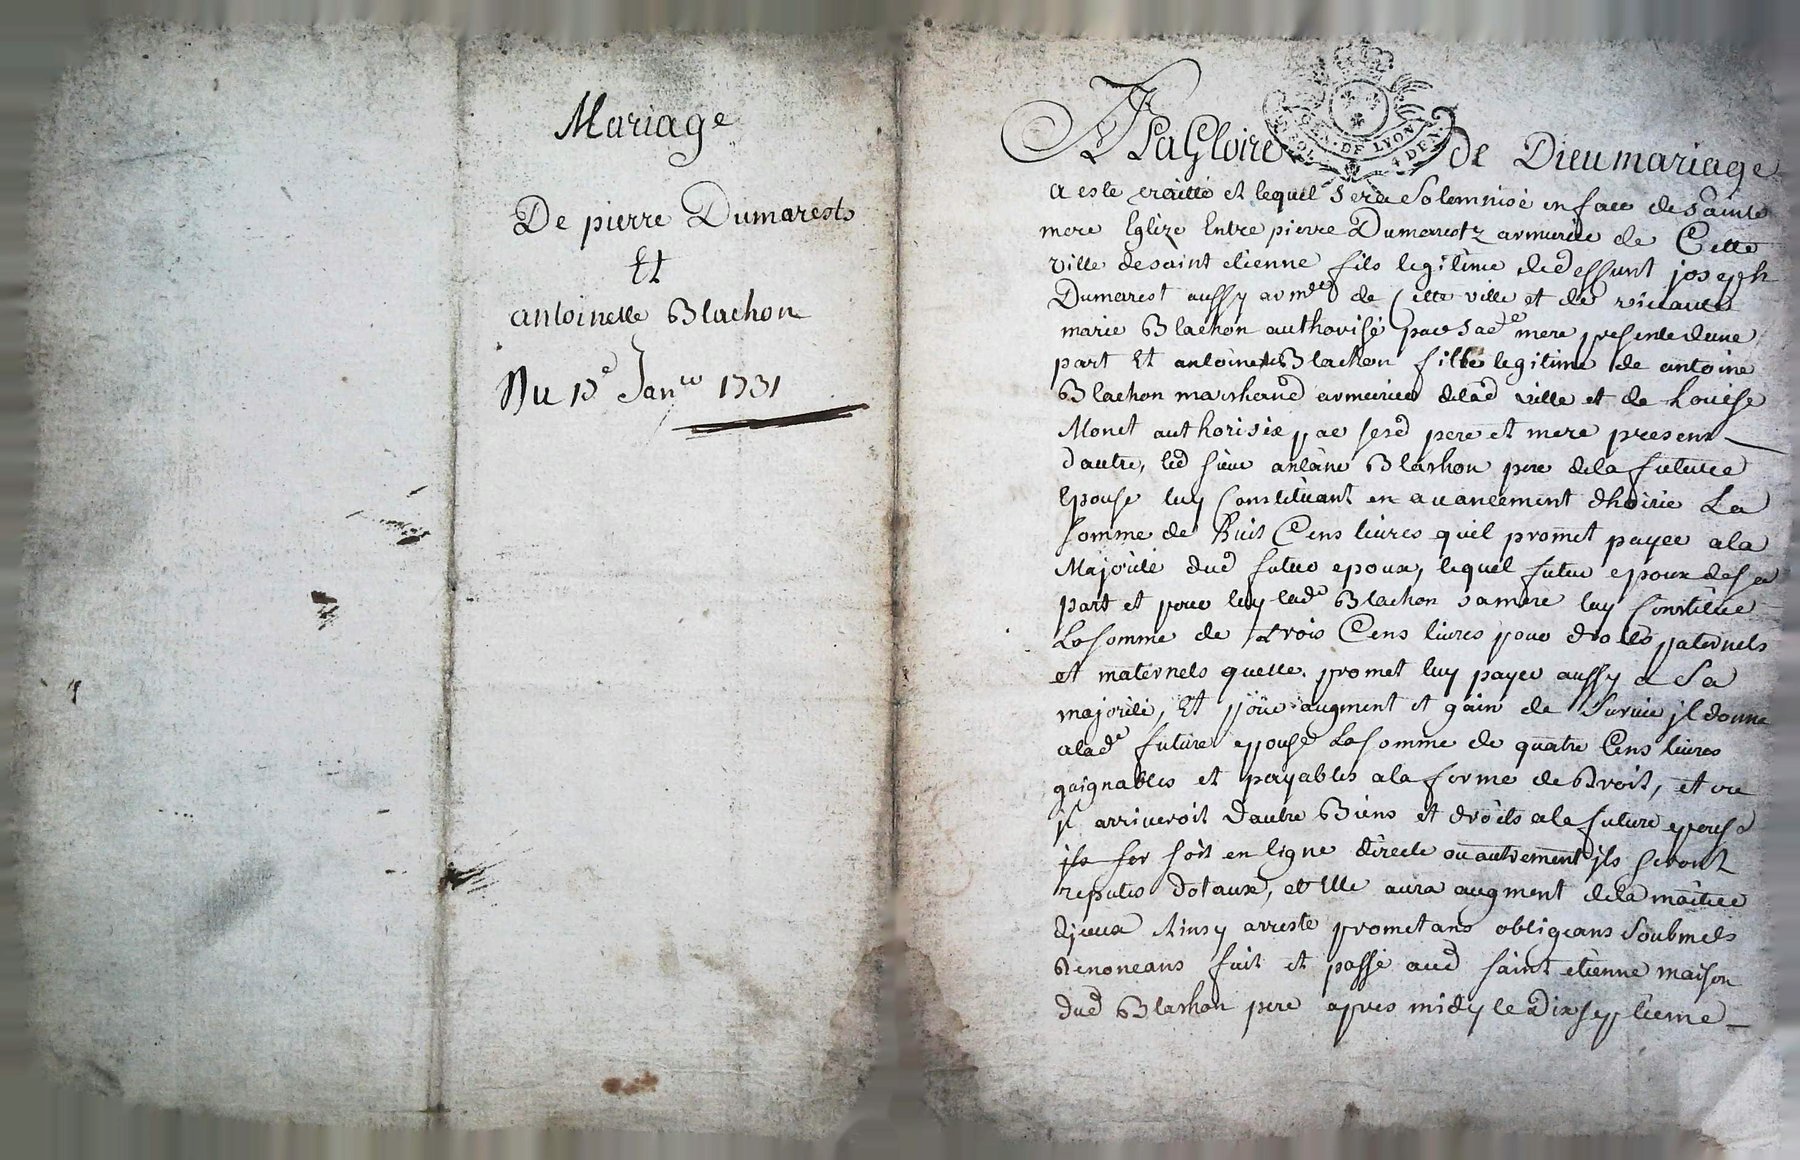 Mariage
De pierre Dumarests
Et
antoinette Blachon
Du 17e Janer 1731
GEN. DE LYON
4 DEN
A La Gloire de Dieu mariage
a este traitté et lequel sera Solemnisé en face de sainte
mere Eglize Entre pierre Dumarestz armurier de Cette
ville de saint etienne fils legitime de deffunt joseph
Dumarest aussy armer de Cette ville et de vivante
marie Blachon authorisé par sade mere presente dune
part Et antoinette Blachon fille legitime de antoine
Blachon marchand armurier delad ville et de Louise
Monet authorisée par sesd pere et mere presents
dautre, led sieur antoine Blachon pere dela future
Epouse luy Constituant en avancement dhoirie La
somme de huit Cens livres quil promet payer ala
Majorité dud futur epoux, lequel futur epoux de sa
part et pour luy lade Blachon sa mere luy Constitue
La somme de trois Cens livres pour droits paternels
et maternels quelle promet luy payer aussy a Sa
majorité, Et pour augment et gain de Survie jl donne
alade future epouse La somme de quatre Cens livres
gaignables et payables ala forme de Droit, et ou
jl arriveroit Dautre Biens et droits ala future epouse
soit en ligne directe ou autrement jls seront
reputés dotaux, et Elle aura augment dela moitiee
djceux Ainsy arresté promettans obligeans Soubmets
Renonceans fait et passé aud saint etienne maison
dud Blachon pere apres midy le Dixseptieme